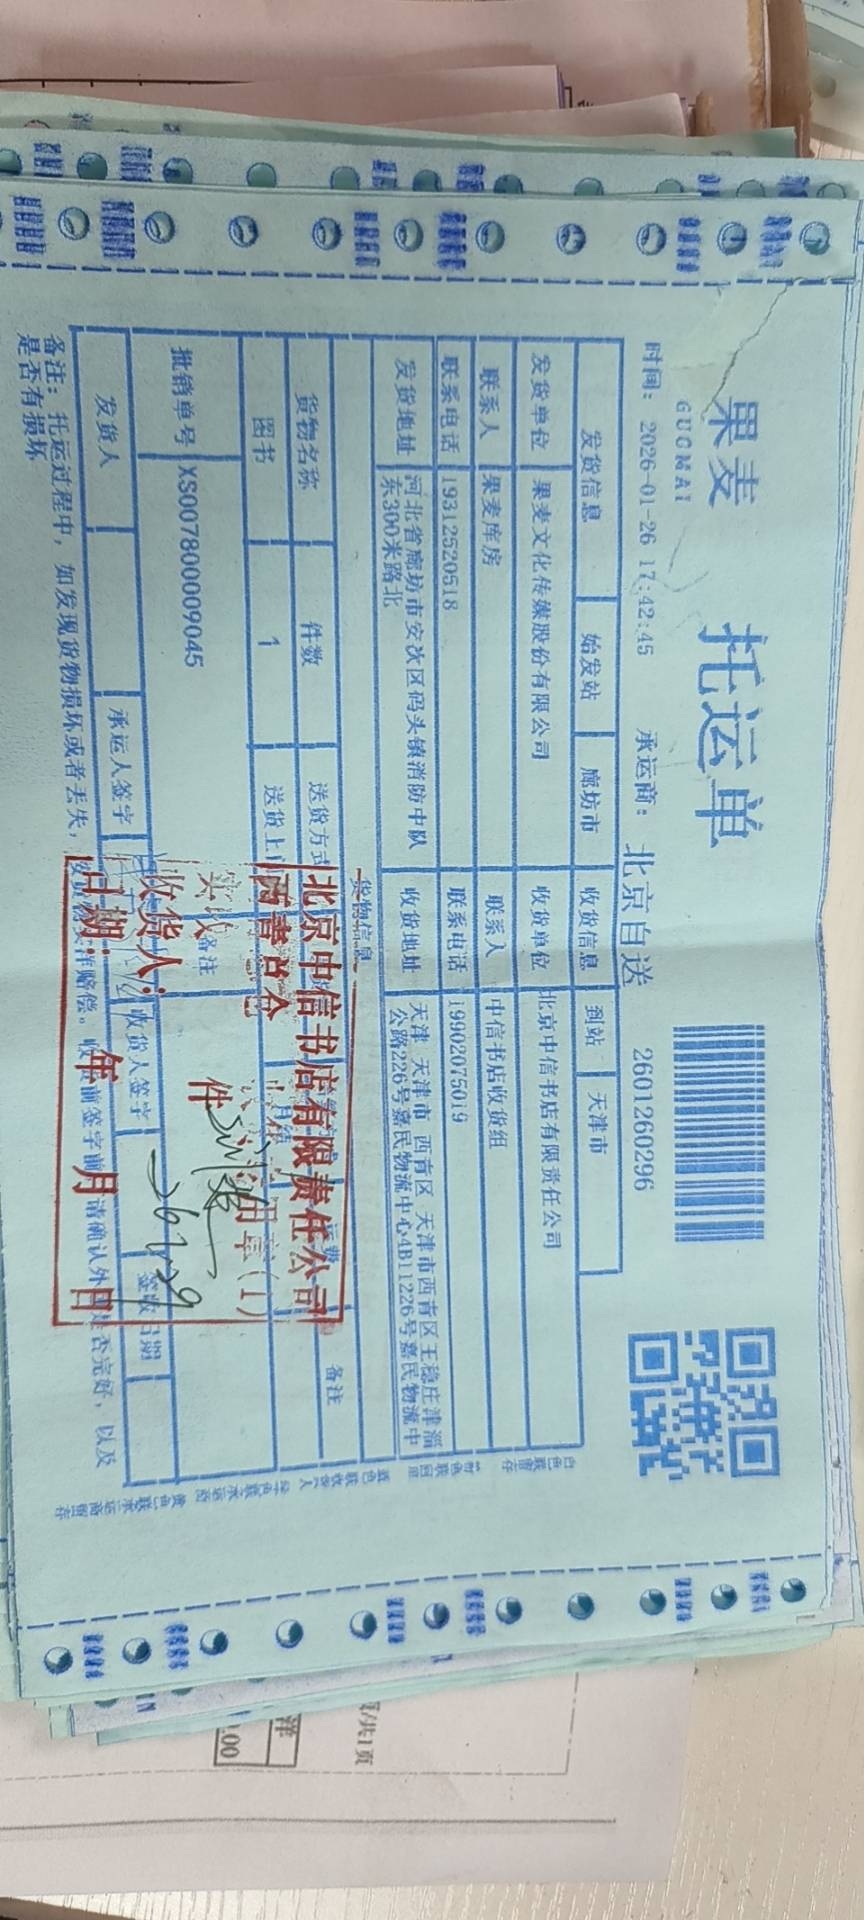 果麦
GUOMAI
托运单
时间: 2026-01-26 17:42:45
承运商: 北京自送
2601260296
发货信息 始发站 廊坊市 收货信息 到站 天津市
发货单位 果麦文化传媒股份有限公司 收货单位 北京中信书店有限责任公司
联系人 果麦库房 联系人 中信书店收货组
联系电话 19312520518 联系电话 19902075019
发货地址 河北省廊坊市安次区码头镇消防中队东300米路北
收货地址 天津 天津市 西青区 天津市西青区王稳庄津淄公路226号嘉民物流中心4B11226号嘉民物流中
货物信息
货物名称 件数 送货方式 运费 备注
图书 1 送货上 月结
批销单号 XS007800009045 备注
发货人 承运人签字 收货人签字 签收日期
备注: 托运过程中, 如发现货物损坏或者丢失,
请确认外 是否完好, 以及
是否有损坏
北京中信书店有限责任公司
实收
件
收货人:
日期: 年 月 日
页/共1页
洋
.00